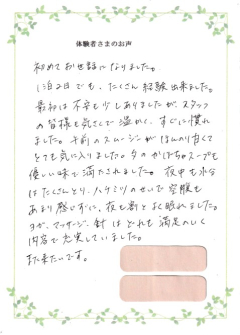 体験者さまのお声
初めてお世話になりました。
1泊2日でも、たくさん経験出来ました。
最初は不安も少しありましたが、スタッフ
の皆様も気さくで温かく、すぐに慣れ
ました。午前のスムージーがほんのり甘くて
とても気に入りました。夕のかぼちゃスープも
優しい味で満たされました。夜中も水分
はたくさんとり、ハチミツのせいで空腹も
あまり感じずに、夜も割とよく眠れました。
ヨガ、マッサージ、針はどれも満足のいく
内容で充実していました。
また来たいです。